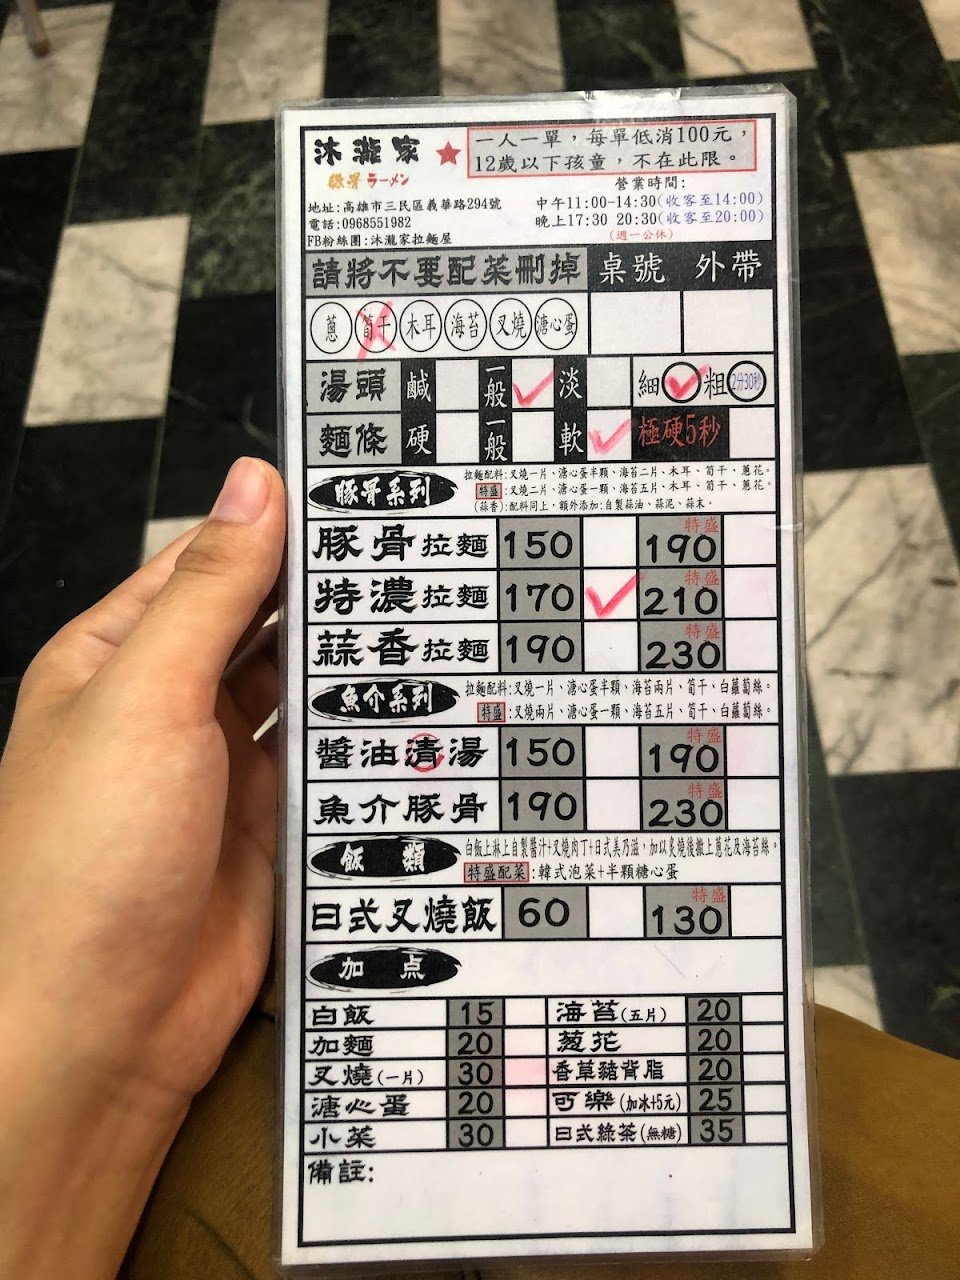 沐瀧家
豚骨ラーメン
一人一單，每單低消100元，
12歲以下孩童，不在此限。
營業時間:
地址:高雄市三民區義華路294號
中午11:00-14:30(收客至14:00)
電話:0968551982
晚上17:30 20:30(收客至20:00)
FB粉絲團:沐瀧家拉麵屋
(週一公休)
請將不要配菜刪掉 桌號 外帶
蔥 筍干 木耳 海苔 叉燒 溏心蛋
湯頭 鹹 一般 淡 細 粗 2分30秒
麵條 硬 一般 軟 極硬5秒
豚骨系列
拉麵配料:叉燒一片、溏心蛋半顆、海苔二片、木耳、筍干、蔥花。
特盛:叉燒二片、溏心蛋一顆、海苔五片、木耳、筍干、蔥花。
(蒜香):配料同上，額外添加:自製蒜油、蒜泥、蒜末。
豚骨拉麵 150 特盛 190
特濃拉麵 170 特盛 210
蒜香拉麵 190 特盛 230
魚介系列
拉麵配料:叉燒一片、溏心蛋半顆、海苔兩片、筍干、白蘿蔔絲。
特盛:叉燒兩片、溏心蛋一顆、海苔五片、筍干、白蘿蔔絲。
醬油清湯 150 特盛 190
魚介豚骨 190 特盛 230
飯類
白飯上淋上自製醬汁+叉燒肉丁+日式美乃滋，加以炙燒後撒上蔥花及海苔絲。
特盛配菜:韓式泡菜+半顆糖心蛋
日式叉燒飯 60 特盛 130
加点
白飯 15 海苔(五片) 20
加麵 20 葱花 20
叉燒(一片) 30 香草豬背脂 20
溏心蛋 20 可樂(加冰+5元) 25
小菜 30 日式綠茶(無糖) 35
備註: